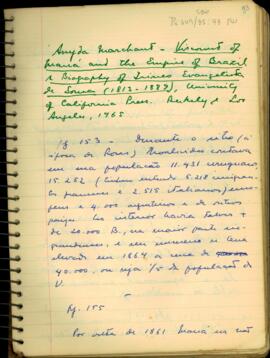 83
Anyda Marchant - Viscount of
Mauá and the Empire of Brazil
a Biography of Irineu Evangelista
de Sousa (1813-1889), University
of California Press. Berkely & Los
Angeles, 1965
pg 153 - Durante o sitio (à
época de Rosas) Montevideo contava
em sua população 11.431 uruguaios,
15.252 (
5.218
franceses e 2.515 italianos)
e 4.000 argentinos e de outros
países. No interior havia talvez +
de 20.000 B, na maior parte
e esse número
elevado em 1864, a cerca de
40.000, ou seja 1/5 da população do
U.
Pg. 155
Por volta de 1861 Mauá